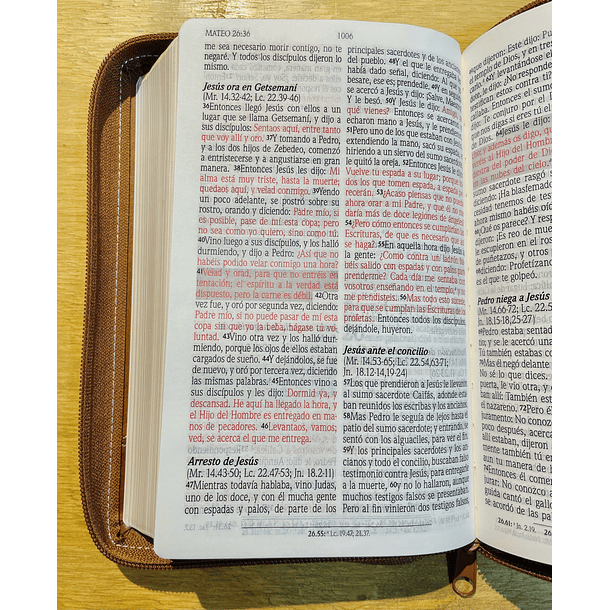 MATEO 26:36
1006
me sea necesario morir contigo, no te
negaré. Y todos los discípulos dijeron lo
mismo.
Jesús ora en Getsemaní
(Mr. 14.32-42; Lc. 22.39-46)
36Entonces llegó Jesús con ellos a un
lugar que se llama Getsemaní, y dijo a
sus discípulos: Sentaos aquí, entre tanto
que voy allí y oro. 37Y tomando a Pedro,
y a los dos hijos de Zebedeo, comenzó
a entristecerse y a angustiarse en gran
manera. 38Entonces Jesús les dijo: Mi
alma está muy triste, hasta la muerte;
quedaos aquí, y velad conmigo. 39Yendo
un poco adelante, se postró sobre su
rostro, orando y diciendo: Padre mío, si
es posible, pase de mí esta copa; pero
no sea como yo quiero, sino como tú.
40Vino luego a sus discípulos, y los halló
durmiendo, y dijo a Pedro: ¿Así que no
habéis podido velar conmigo una hora?
41Velad y orad, para que no entréis en
tentación; el espíritu a la verdad está
dispuesto, pero la carne es débil. 42Otra
vez fue, y oró por segunda vez, diciendo:
Padre mío, si no puede pasar de mí esta
copa sin que yo la beba, hágase tu vo-
luntad. 43Vino otra vez y los halló dur-
miendo, porque los ojos de ellos estaban
cargados de sueño. 44Y dejándolos, se fue
de nuevo, y oró por tercera vez, diciendo
las mismas palabras. 45Entonces vino a
sus discípulos y les dijo: Dormid ya, y
descansad. He aquí ha llegado la hora, y
el Hijo del Hombre es entregado en ma-
nos de pecadores. 46Levantaos, vamos;
ved, se acerca el que me entrega.
Arresto de Jesús
(Mr. 14.43-50; Lc. 22.47-53; Jn. 18.2-11)
47Mientras todavía hablaba, vino Judas,
uno de los doce, y con él mucha gente
con espadas y palos, de parte de los
principales sacerdotes y de los ancianos
del pueblo. 48Y el que le entregaba
había dado señal, diciendo: Al que yo
besare, ese es; prendedle. 49Y en
se acercó a Jesús y dijo: ¡Salve, Maestro!
Y le besó. 50Y Jesús le dijo: Amigo,
qué vienes? Entonces se acercaron
echaron mano a Jesús, y le prendieron.
51Pero uno de los que estaban
extendiendo la mano, sacó su espada,
hiriendo a un siervo del sumo sacerdote
le quitó la oreja. 52Entonces Jesús
Vuelve tu espada a su lugar; porque
dos los que tomen espada, a espada
recerán. 53¿Acaso piensas que no puedo
ahora orar a mi Padre, y que él no
daría más de doce legiones de ángeles?
54¿Pero cómo entonces se cumplirían
Escrituras, de que es necesario que
se haga? 55En aquella hora dijo Jesús
la gente: ¿Como contra un ladrón
béis salido con espadas y con palos para
prenderme? Cada día me sentaba con
vosotros enseñando en el templo, y no
me prendisteis. 56Mas todo esto sucede,
para que se cumplan las Escrituras de los
profetas. Entonces todos los discípulos,
dejándole, huyeron.
Jesús ante el concilio
(Mr. 14.53-65; Lc. 22.54,63-71;
Jn. 18.12-14,19-24)
57Los que prendieron a Jesús le llevaron
al sumo sacerdote Caifás, adonde esta-
ban reunidos los escribas y los ancianos.
58Mas Pedro le seguía de lejos hasta
patio del sumo sacerdote; y entrando, se
sentó con los alguaciles, para ver el fin.
59Y los principales sacerdotes y los an-
cianos y todo el concilio, buscaban falso
testimonio contra Jesús, para entregarle
a la muerte, 60y no lo hallaron, aunque
muchos testigos falsos se presentaban.
Pero al fin vinieron dos testigos falsos,
26.55: Lc. 19.47; 21.37.
que dijeron: Este dijo: Puedo
templo de Dios, y en tres
levantándose el
dijo: ¿No respondes
Jesús le dijo:
además os digo, que
al Hijo del Hombre
diestra del poder de Dios,
en las nubes del cielo.
sumo sacerdote rasgó
¡Ha blasfemado!
cesidad tenemos de
ahora mismo habéis oído
¿Qué os parece? Y
dijeron: ¡Es reo de muerte!
escupieron en el rostro
de puñetazos, y otros
diciendo: Profetízanos
es el que te golpeó.
Pedro niega a Jesús
(Mr. 14.66-72; Lc. 22.
Jn. 18.15-18,25-27)
Pedro estaba sentado
Tú también estabas
Mas él negó delante
No sé lo que dices.
puerta, le vio otra, y
allí: También este
el nazareno.
después, acercándose
allí estaban, dijeron
aun tu manera de
Entonces él comenzó
No conozco
guida cantó el gallo.
se acordó de las
26.61: Jn. 2.19.